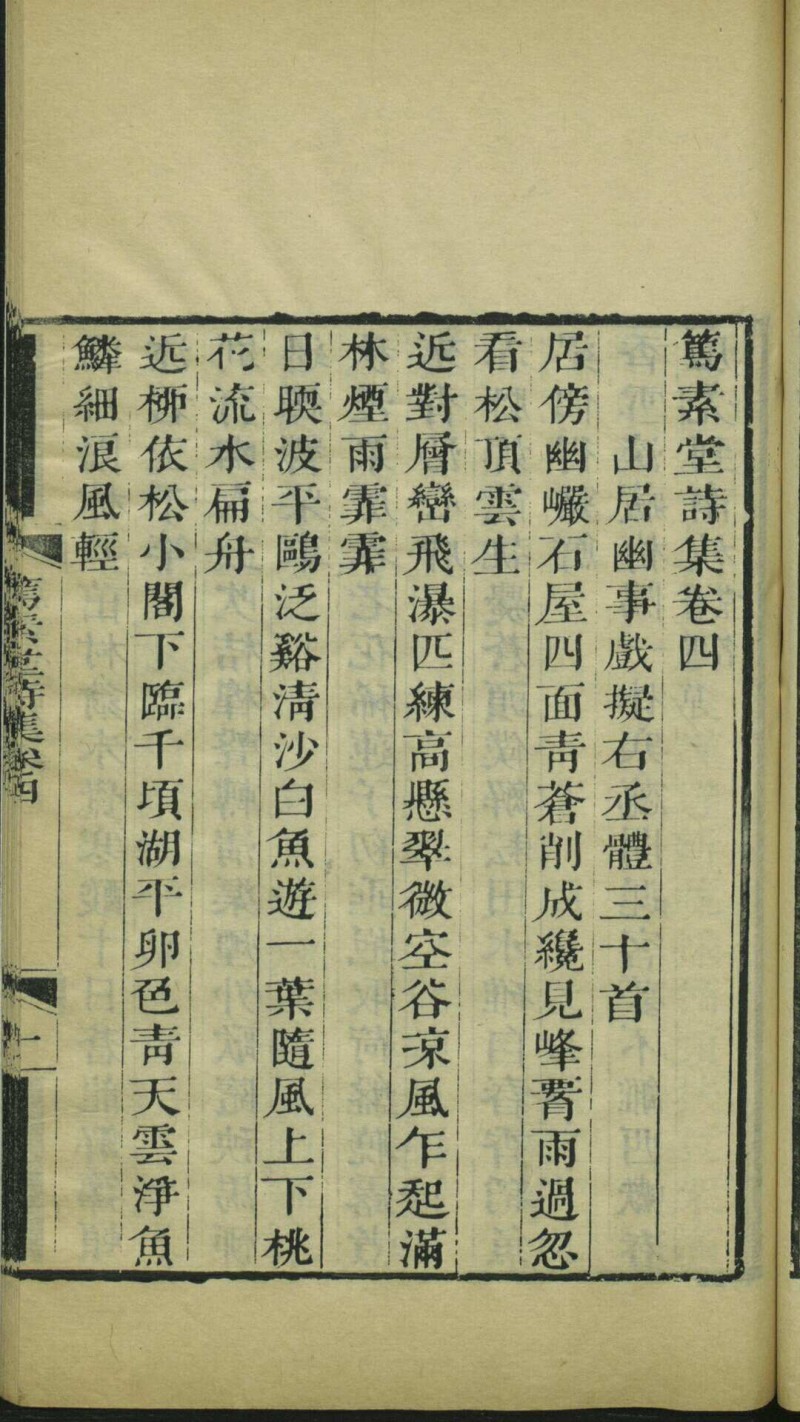 篤素堂詩集卷四
山居幽事戲擬右丞體三十首
居傍幽巗石屋四面青蒼削成纔見峰脊雨過忽
看松頂雲生
近對層巒飛瀑匹練高懸翠微空谷凉風乍起滿
林煙雨霏霏
日暎波平鷗泛谿清沙白魚遊一葉隨風上下桃
花流水扁舟
近柳依松小閣下臨千頃湖平卵色青天雲淨魚
鱗細浪風輕
篤素堂詩集卷四
一